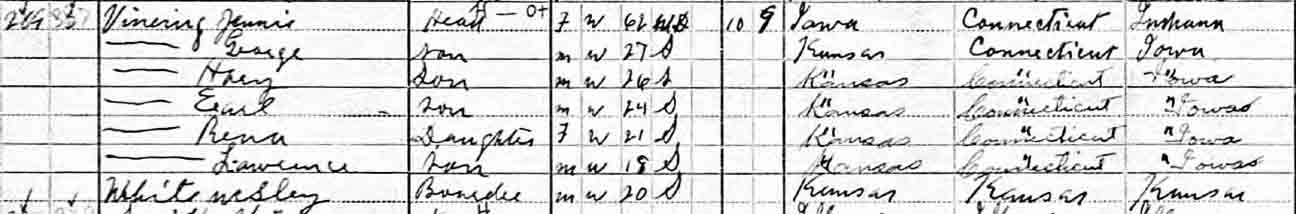 Vinering Jennie Head F W 62 10 9 Iowa Connecticut Indiana
— George Son m W 27 S Kansas Connecticut Iowa
— Son m W 26 S Kansas Connecticut Iowa
— Earl Son m W 24 S Kansas Connecticut Iowa
— Rena Daughter F W 21 S Kansas Connecticut Iowa
— Lawrence Son m W 18 S Kansas Connecticut Iowa
White m W 20 S Kansas Kansas Kansas